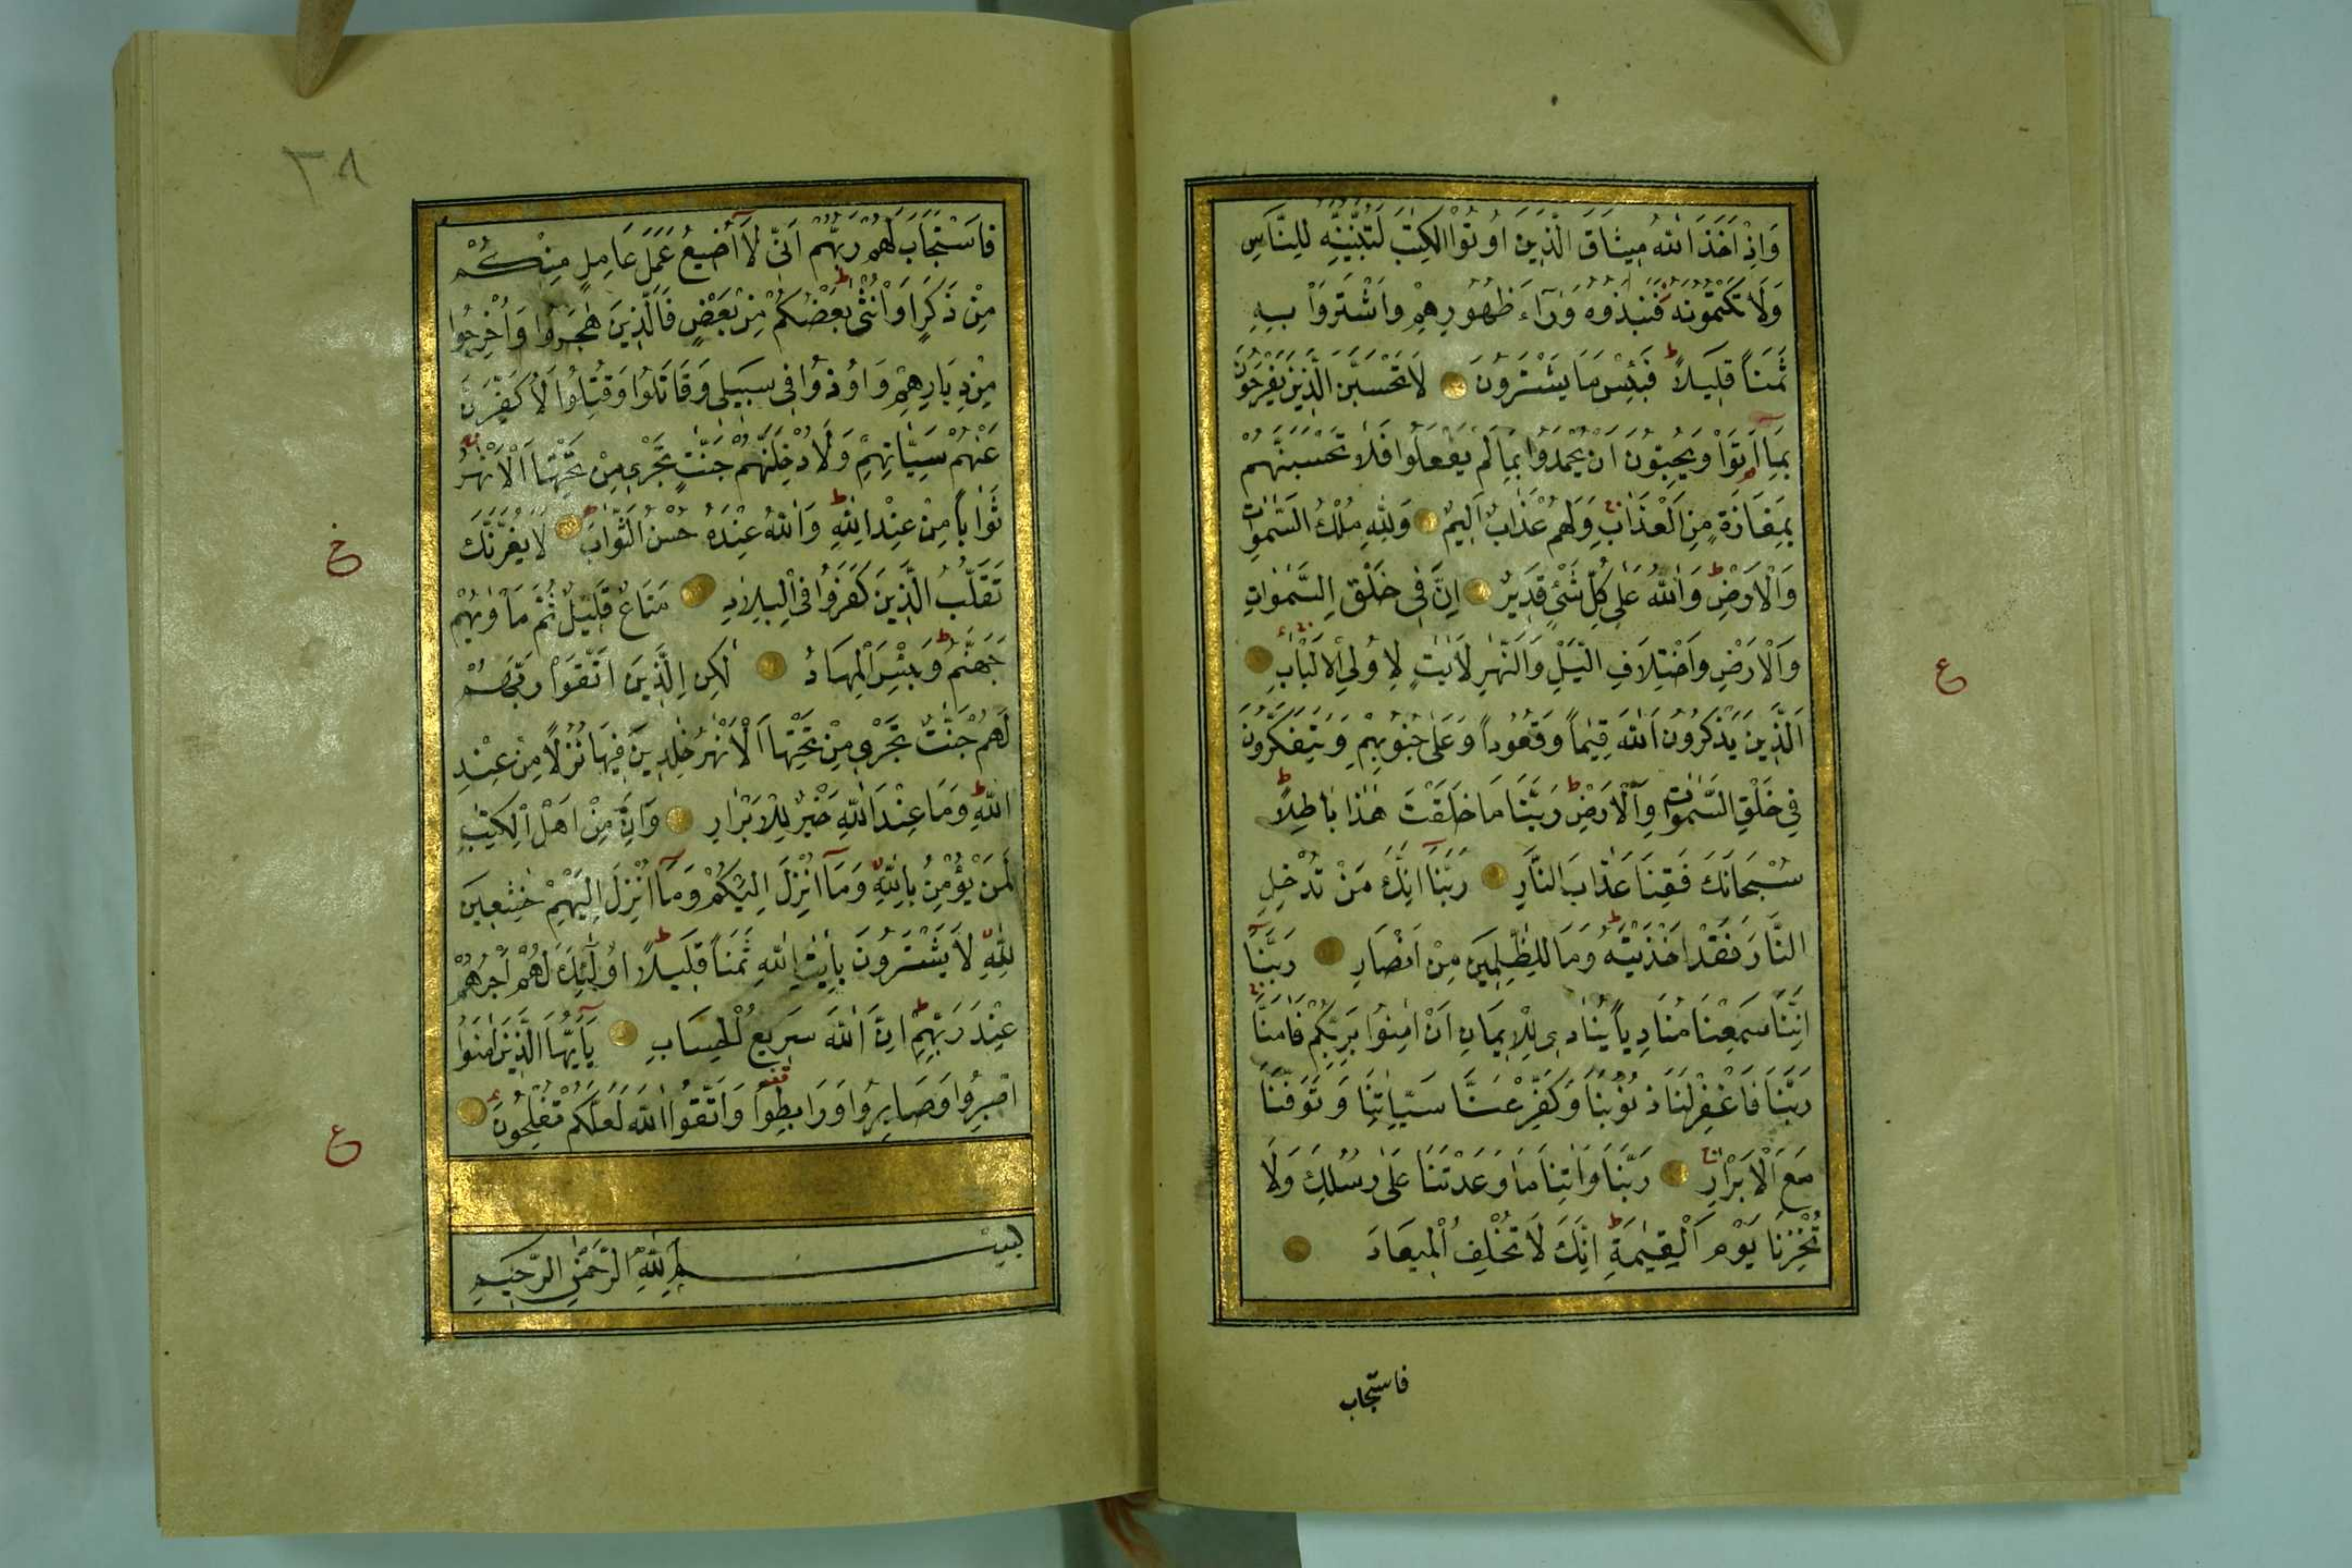 وَاِذْ اَخَذَ اللهُ مِيثَاقَ الَّذِينَ اُوتُوا الْكِتٰبَ لَتُبَيِّنُنَّهُ لِلنَّاسِ
وَلَا تَكْتُمُونَهُ فَنَبَذُوهُ وَرَآءَ ظُهُورِهِمْ وَاشْتَرَوْا بِهِ
ثَمَناً قَلِيلاً فَبِئْسَ مَا يَشْتَرُونَ لَا تَحْسَبَنَّ الَّذِينَ يَفْرَحُونَ
بِمَآ اَتَوْا وَيُحِبُّونَ اَنْ يُحْمَدُوا بِمَا لَمْ يَفْعَلُوا فَلَا تَحْسَبَنَّهُمْ
بِمَفَازَةٍ مِنَ الْعَذَابِ وَلَهُمْ عَذَابٌ اَلِيمٌ وَلِلّٰهِ مُلْكُ السَّمٰوَاتِ
وَالْاَرْضِ وَاللهُ عَلٰى كُلِّ شَىْءٍ قَدِيرٌ اِنَّ فِى خَلْقِ السَّمٰوَاتِ
وَالْاَرْضِ وَاخْتِلَافِ الَّيْلِ وَالنَّهَارِ لَاٰيٰتٍ لِاُولِى الْاَلْبَابِ
ع
اَلَّذِينَ يَذْكُرُونَ اللهَ قِيٰماً وَقُعُوداً وَعَلٰى جُنُوبِهِمْ وَيَتَفَكَّرُونَ
فِى خَلْقِ السَّمٰوَاتِ وَالْاَرْضِ رَبَّنَا مَا خَلَقْتَ هٰذَا بَاطِلاً
سُبْحَانَكَ فَقِنَا عَذَابَ النَّارِ رَبَّنَآ اِنَّكَ مَنْ تُدْخِلِ
النَّارَ فَقَدْ اَخْزَيْتَهُ وَمَا لِلظّٰلِمِينَ مِنْ اَنْصَارٍ رَبَّنَآ
اِنَّنَا سَمِعْنَا مُنَادِياً يُنَادِى لِلْاِيمَانِ اَنْ اٰمِنُوا بِرَبِّكُمْ فَاٰمَنَّا
رَبَّنَا فَاغْفِرْ لَنَا ذُنُوبَنَا وَكَفِّرْ عَنَّا سَيِّاٰتِنَا وَتَوَفَّنَا
مَعَ الْاَبْرَارِ رَبَّنَا وَاٰتِنَا مَا وَعَدْتَنَا عَلٰى رُسُلِكَ وَلَا
تُخْزِنَا يَوْمَ الْقِيٰمَةِ اِنَّكَ لَا تُخْلِفُ الْمِيعَادَ
فاستجاب
٣٨
فَاسْتَجَابَ لَهُمْ رَبُّهُمْ اَنِّى لَآ اُضِيعُ عَمَلَ عَامِلٍ مِنْكُمْ
مِنْ ذَكَرٍ اَوْ اُنْثٰى بَعْضُكُمْ مِنْ بَعْضٍ فَالَّذِينَ هَاجَرُوا وَاُخْرِجُوا
مِنْ دِيَارِهِمْ وَاُوذُوا فِى سَبِيلِى وَقَاتَلُوا وَقُتِلُوا لَاُكَفِّرَنَّ
عَنْهُمْ سَيِّاٰتِهِمْ وَلَاُدْخِلَنَّهُمْ جَنّٰتٍ تَجْرِى مِنْ تَحْتِهَا الْاَنْهٰرُ
ثَوَاباً مِنْ عِنْدِ اللهِ وَاللهُ عِنْدَهُ حُسْنُ الثَّوَابِ لَا يَغُرَّنَّكَ
خ
تَقَلُّبُ الَّذِينَ كَفَرُوا فِى الْبِلَادِ مَتَاعٌ قَلِيلٌ ثُمَّ مَاْوٰيهُمْ
جَهَنَّمُ وَبِئْسَ الْمِهَادُ لٰكِنِ الَّذِينَ اتَّقَوْا رَبَّهُمْ
لَهُمْ جَنّٰتٌ تَجْرِى مِنْ تَحْتِهَا الْاَنْهٰرُ خٰلِدِينَ فِيهَا نُزُلاً مِنْ عِنْدِ
اللهِ وَمَا عِنْدَ اللهِ خَيْرٌ لِلْاَبْرَارِ وَاِنَّ مِنْ اَهْلِ الْكِتٰبِ
لَمَنْ يُؤْمِنُ بِاللهِ وَمَآ اُنْزِلَ اِلَيْكُمْ وَمَآ اُنْزِلَ اِلَيْهِمْ خٰشِعِينَ
لِلّٰهِ لَا يَشْتَرُونَ بِاٰيٰتِ اللهِ ثَمَناً قَلِيلاً اُولٰٓئِكَ لَهُمْ اَجْرُهُمْ
عِنْدَ رَبِّهِمْ اِنَّ اللهَ سَرِيعُ الْحِسَابِ يَآ اَيُّهَا الَّذِينَ اٰمَنُوا
اصْبِرُوا وَصَابِرُوا وَرَابِطُوا وَاتَّقُوا اللهَ لَعَلَّكُمْ تُفْلِحُونَ
ع
بِسْمِ اللهِ الرَّحْمٰنِ الرَّحِيمِ